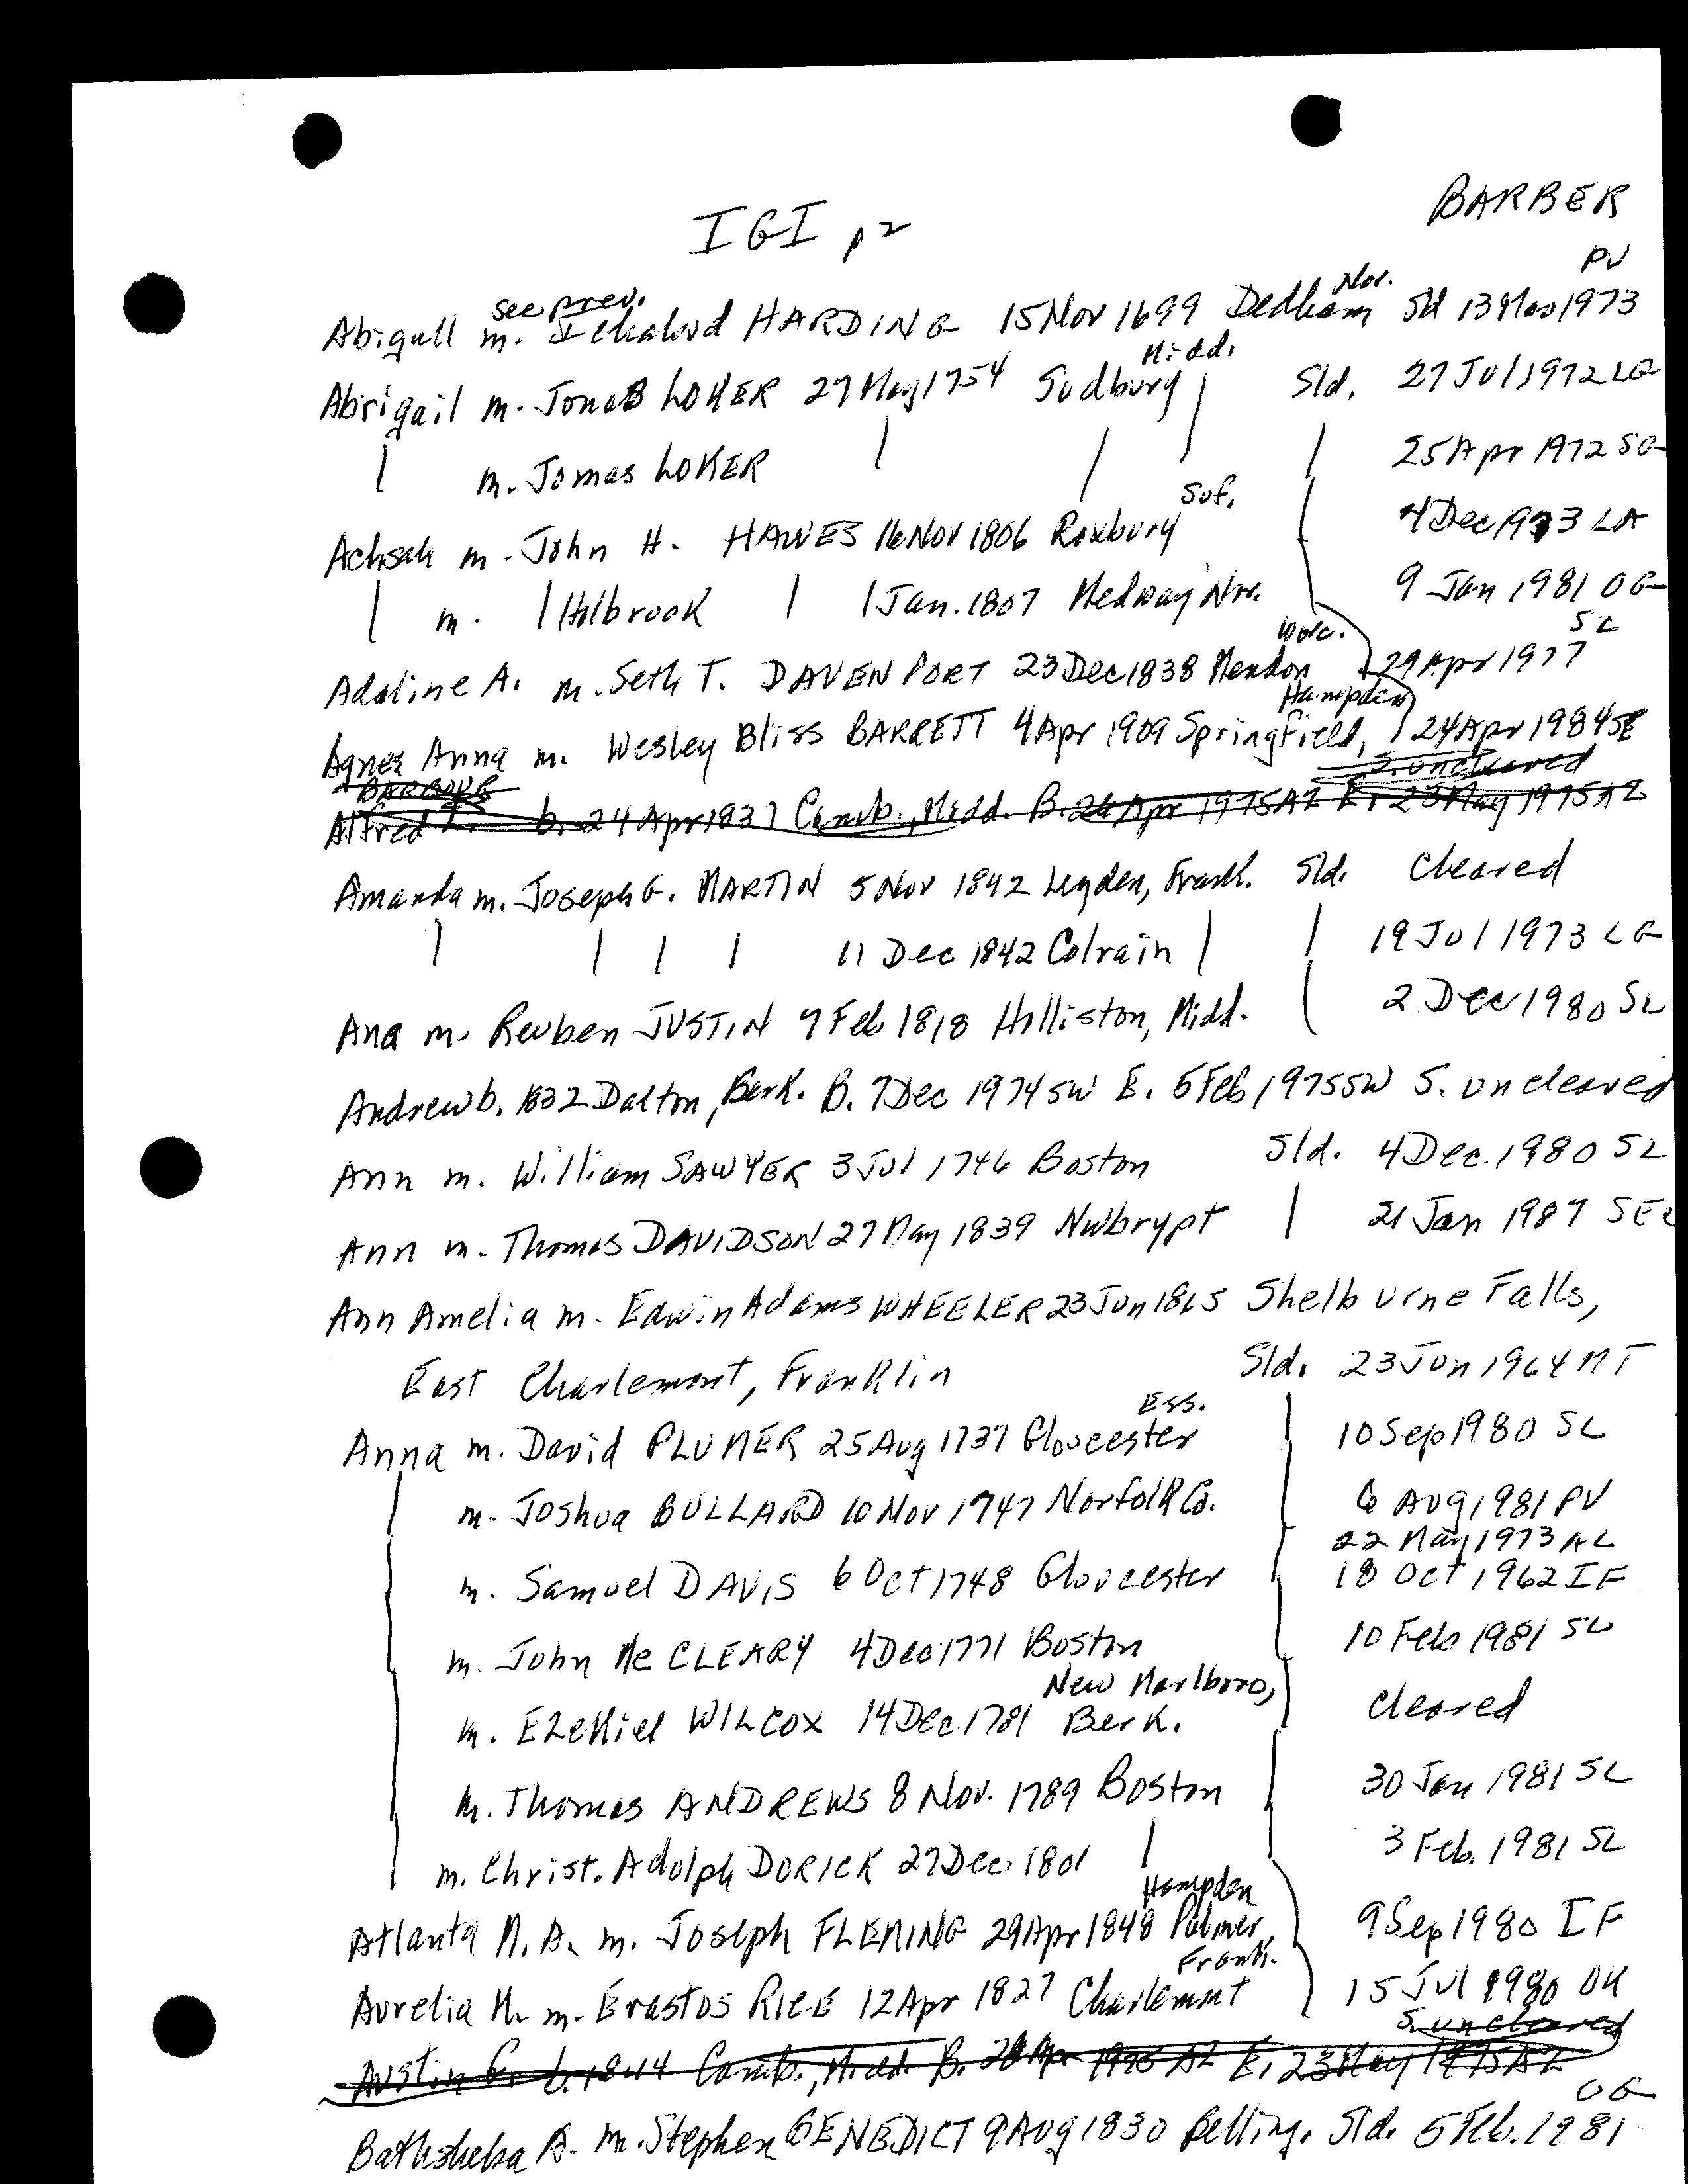 BARBER
IGI p2
PV
see prev. Nor.
Abigall m. Ichabod HARDING 15 Nov 1699 Dedham Sld 13 Nov 1973
Midd.
Abrigail m. Jonas LOKER 27 May 1754 Sudbury Sld. 27 Jul 1972 LG
| m. Jomas LOKER | | | 25 Apr 1972 SG
Suf.
Achsah m. John H. HAWES 16 Nov 1806 Roxbury 4 Dec 1973 LA
| m. | Holbrook | 1 Jan. 1807 Medway Nor. 9 Jan 1981 OG
Worc. SL
Adaline A. m. Seth T. DAVENPORT 23 Dec 1838 Mendon 29 Apr 1977
Hampden
Agnes Anna m. Wesley Bliss BARRETT 4 Apr 1909 Springfield, 24 Apr 1984 SE
BARBOUR S. uncleared
Alfred I. b. 24 Apr 1837 Camb., Midd. B. 26 Apr 1975 AZ E. 23 May 1975 AZ
Amanda m. Joseph G. MARTIN 5 Nov 1842 Leyden, Frank. Sld. Cleared
| | | | 11 Dec 1842 Colrain | | 19 Jul 1973 LG
Ana m. Reuben JUSTIN 9 Feb 1818 Holliston, Midd. 2 Dec 1980 SL
Andrew b. 1832 Dalton, Berk. B. 7 Dec 1974 SW E. 5 Feb 1975 SW S. uncleared
Ann m. William SAWYER 3 Jul 1746 Boston Sld. 4 Dec. 1980 SL
Ann m. Thomas DAVIDSON 27 May 1839 Nwbrypt | 21 Jan 1987 SE
Ann Amelia m. Edwin Adams WHEELER 23 Jun 1865 Shelburne Falls,
East Charlemont, Franklin Sld. 23 Jun 1964 MT
Ess.
Anna m. David PLUMER 25 Aug 1737 Gloucester 10 Sep 1980 SL
m. Joshua BULLARD 10 Nov 1747 Norfolk Co. 6 Aug 1981 PV
22 May 1973 AL
m. Samuel DAVIS 6 Oct 1748 Gloucester 18 Oct 1962 IF
m. John McCLEARY 4 Dec 1771 Boston 10 Feb 1981 SL
New Marlboro,
m. Ezekiel WILCOX 14 Dec 1781 Berk. cleared
m. Thomas ANDREWS 8 Nov. 1789 Boston 30 Jan 1981 SL
m. Christ. Adolph DORICK 27 Dec. 1801 | 3 Feb. 1981 SL
Hampden
Atlanta M. A. m. Joseph FLEMING 29 Apr 1848 Palmer, 9 Sep 1980 IF
Frank.
Aurelia H. m. Erastos RICE 12 Apr 1827 Charlemont 15 Jul 1980 OK
S. uncleared
Austin G. b. 1844 Camb., Midd. B. 26 Apr 1975 AZ E. 23 May 1975 AZ
OG
Bathsheba A. m. Stephen BENEDICT 9 Aug 1830 Belling. Sld. 5 Feb. 1981